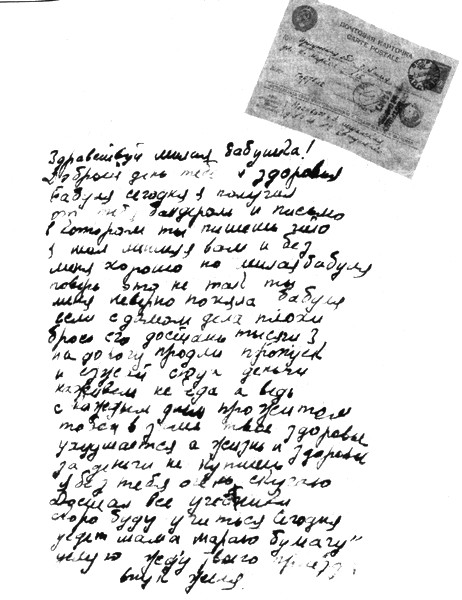 ПОЧТОВАЯ КАРТОЧКА
CARTE POSTALE
Здравствуй милая бабушка!
Доброго день тебе и здоровья
Бабуля сегодня я получил
от тебя бандероль и письмо
в котором ты пишешь что
я мол мешал вам и без
меня хорошо но милая бабуля
поверь это не так ты
меня неверно поняла бабуля
если с домом дела плохи
брось его достань тысячи 3
на дорогу продли пропуск
и езжай сюда деньги
наживем не беда а ведь
с каждым днем прожитом
тобой в твое здоровье
ухудшается а жизнь и здоровье
за деньги не купишь
я без тебя очень скучаю
Достал все учебники
скоро буду учиться Сегодня
уедет мама мараю бумагу"
целую жду твоего приезда
внук Женя.